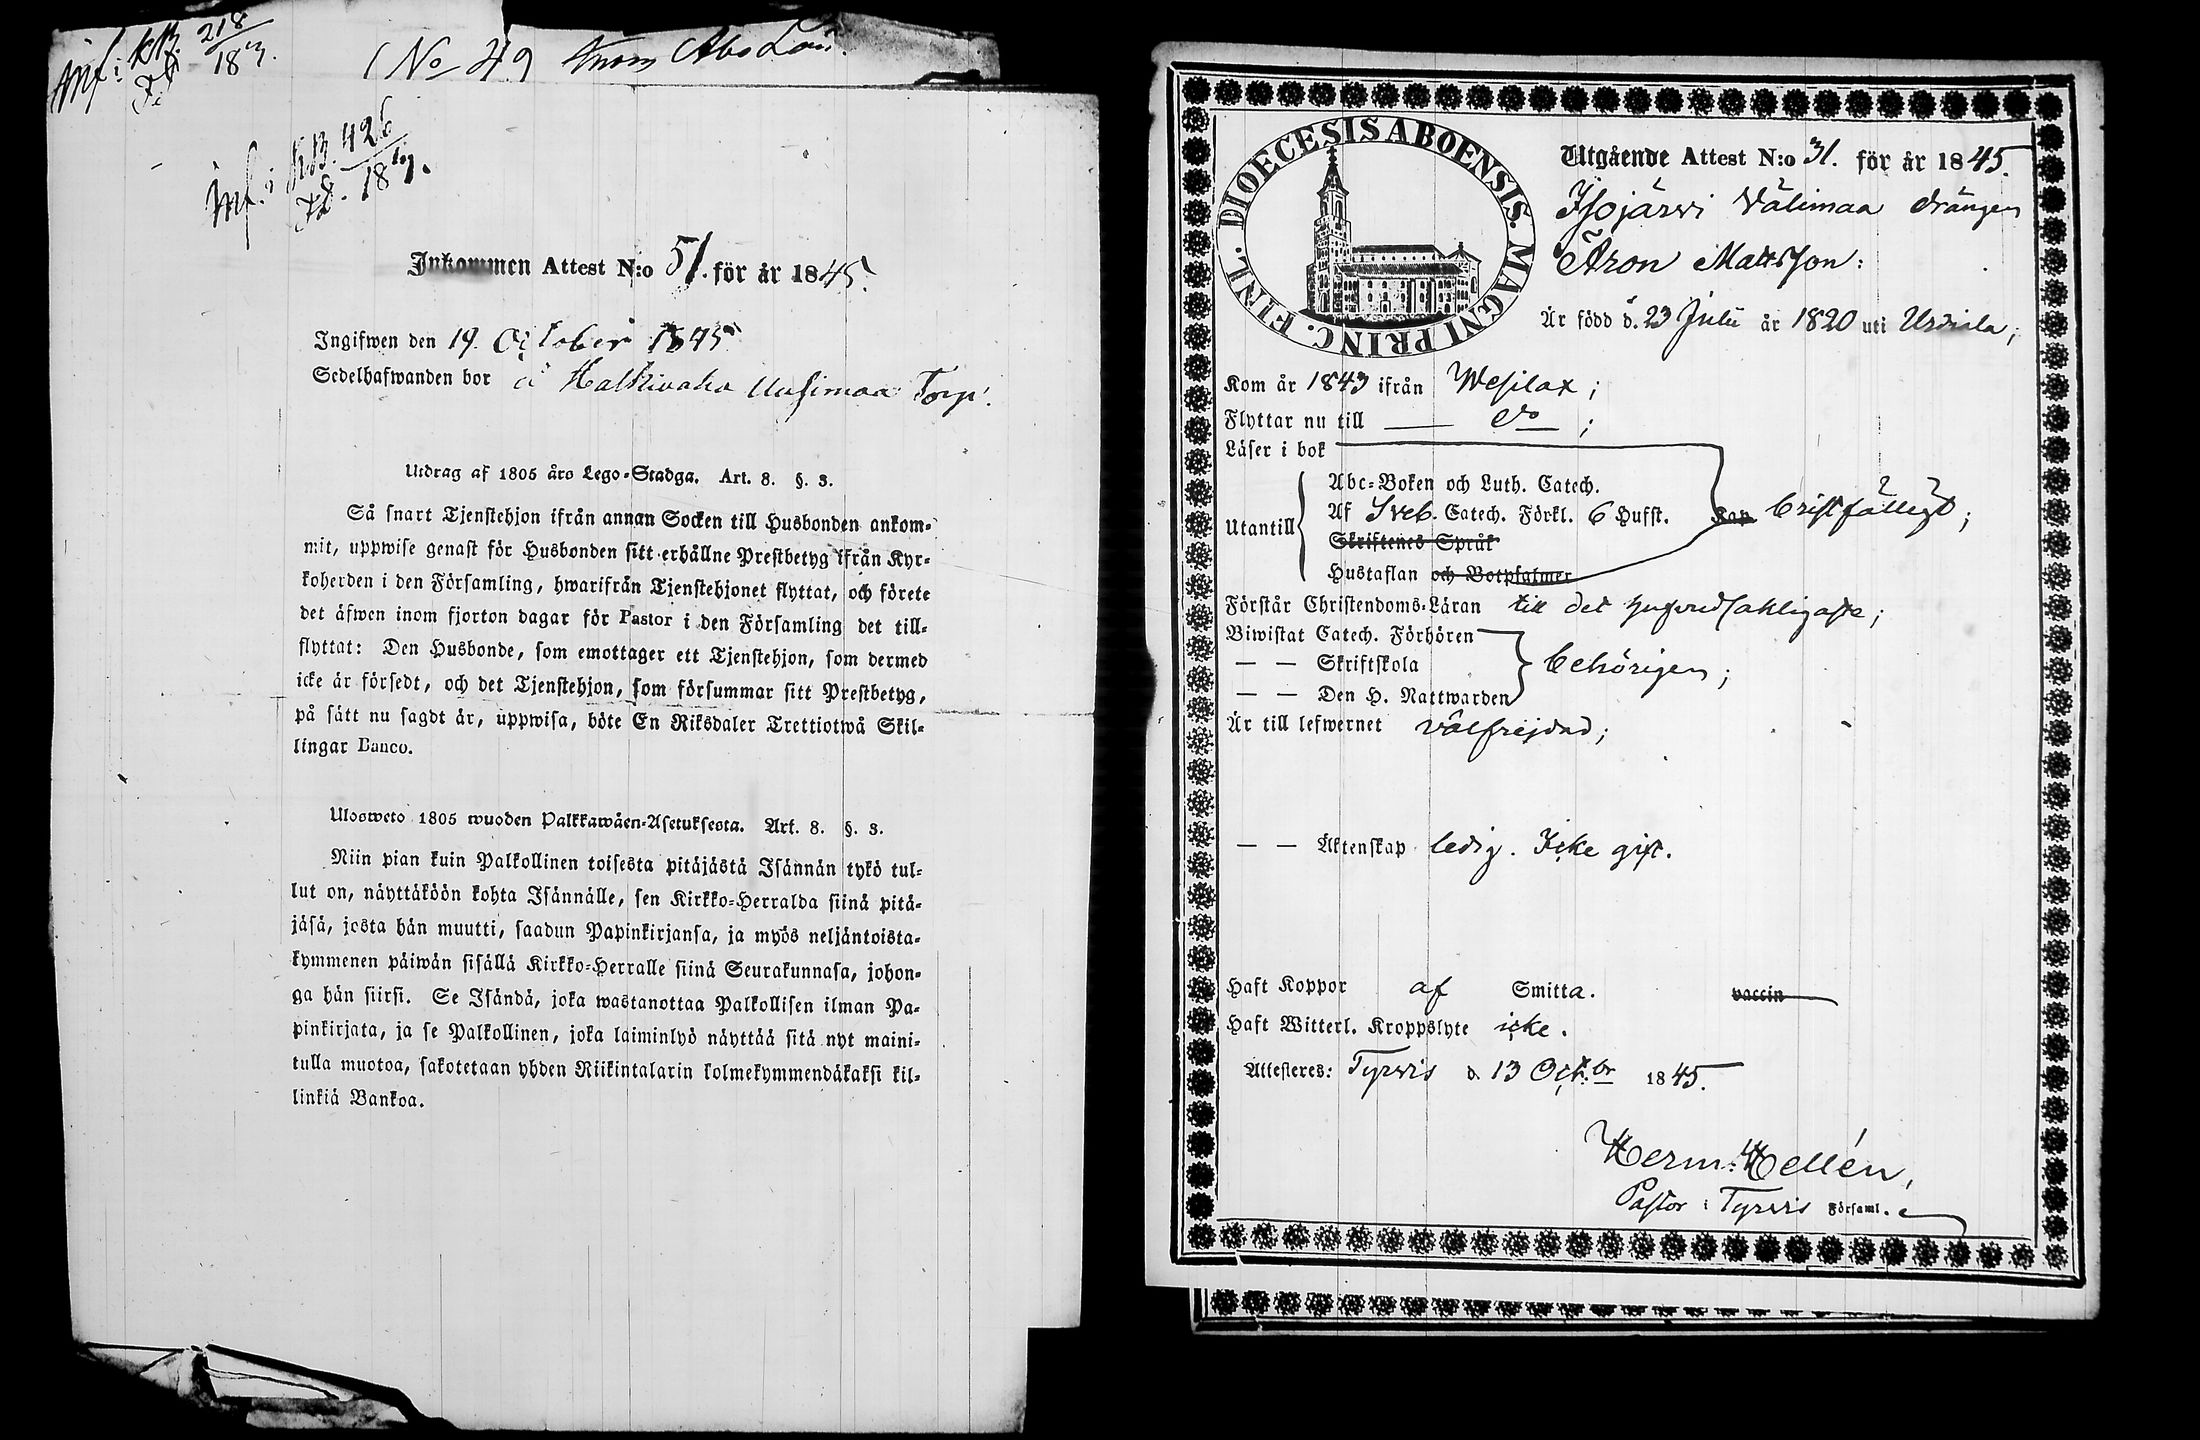 Inf. i KB. 218
Fd 183.
(No 49 inom Åbo Län.
Inf. i KB. 426
Fd. 18
Inkommen Attest N:o 51. för år 1845.
Ingifwen den 19 October 1845
Sedelhafwanden bor å Halkivaha Uusimaa Torp.
Utdrag af 1805 års Lego-Stadga. Art. 8. §. 3.
Så snart Tjenstehjon ifrån annan Socken till Husbonden ankom-
mit, uppwise genast för Husbonden sitt erhållne Prestbetyg ifrån Kyr-
koherden i den Församling, hwarifrån Tjenstehjonet flyttat, och förete
det äfwen inom fjorton dagar för Pastor i den Församling det till-
flyttat: Den Husbonde, som emottager ett Tjenstehjon, som dermed
icke är försedt, och det Tjenstehjon, som försummar sitt Prestbetyg,
på sätt nu sagdt är, uppwisa, böte En Riksdaler Trettiotwå Skil-
lingar Banco.
Ulosweto 1805 wuoden Palkkawäen-Asetuksesta. Art. 8. §. 3.
Niin pian kuin Palkollinen toisesta pitäjästä Isännän tykö tul-
lut on, näyttäköön kohta Isännälle, sen Kirkko-Herralda siinä pitä-
jäsä, josta hän muutti, saadun Papinkirjansa, ja myös neljäntoista-
kymmenen päiwän sisällä Kirkko-Herralle siinä Seurakunnasa, johon-
ga hän siirsi. Se Isändä, joka wastanottaa Palkollisen ilman Pa-
pinkirjata, ja se Palkollinen, joka laiminlyö näyttää sitä nyt maini-
tulla muotoa, sakotetaan yhden Riikintalarin kolmekymmendäkaksi kil-
linkiä Bankoa.
DIOECESIS ABOENSIS. MAGNI PRINC. FINL.
Utgående Attest N:o 31. för år 1845.
Isojärvi Välimaa drängen
Aron Mattsson:
Är född d. 23 Julii år 1820 uti Urdiala;
Kom år 1843 ifrån Wesilax;
Flyttar nu till — do;
Läser i bok
Utantill
Abc-Boken och Luth. Catech.
Af Sveb. Catech. Förkl. 6 Hufst. Kap bristfälligt;
Skriftenes Språk
Hustaflan och Botpsalmer
Förstår Christendoms-Läran till det hufvudsakligaste;
Biwistat Catech. Förhören
— — Skriftskola behörigen;
— — Den H. Nattwarden
Är till lefwernet välfrejdad;
— — Äktenskap ledig. Icke gift.
Haft Koppor af Smitta. vaccin
Haft Witterl. Kroppslyte icke.
Attesteres: Tyrvis d. 13 Oct:br 1845.
Herm: Hellén,
Pastor i Tyrvis Församl.